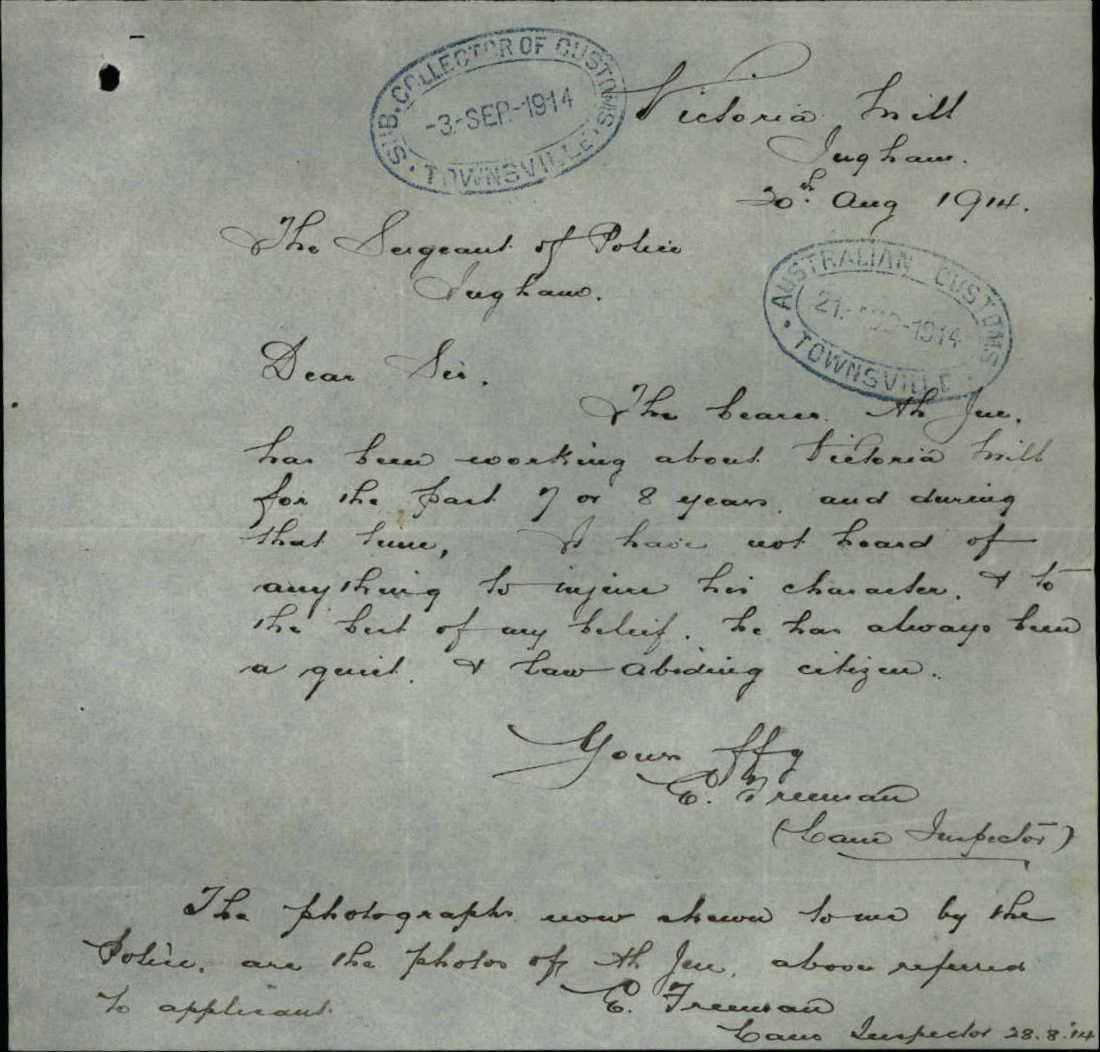 SUB. COLLECTOR OF CUSTOMS.
-3.-SEP.-1914
· TOWNSVILLE ·
Victoria Mill
Ingham.
20th. Aug 1914.
The Sergeant of Police
Ingham.
AUSTRALIAN CUSTOMS
21.-AUG-1914
· TOWNSVILLE ·
Dear Sir.
The bearer. Ah Jue.
has been working about Victoria Mill
for the past 7 or 8 years. and during
that time, I have not heard of
anything to injure his character. & to
the best of my beleif. he has always been
a quiet. & law abiding citizen.
Yours ffy
E. Freeman
(Cane Inspector)
The photographs now shewn to me by the
Police. are the photos of Ah Jue. above referred
to applicant.
E. Freeman
Cane Inspector 28.8.'14